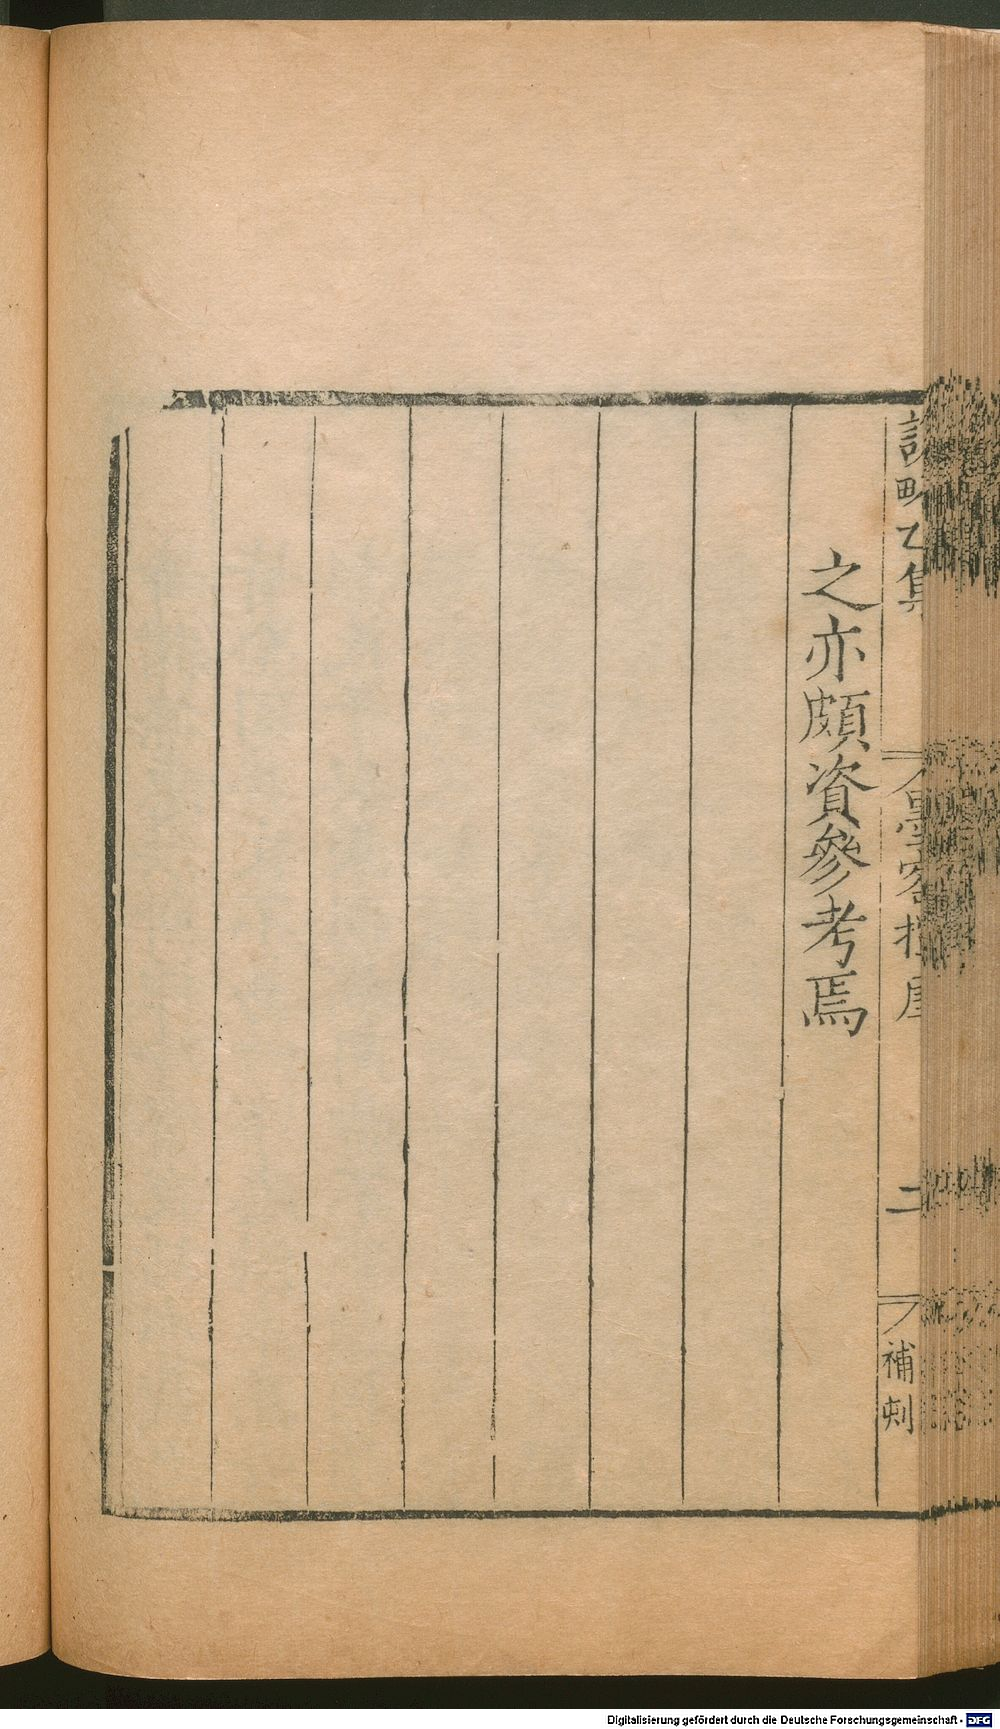 乙集
二
補刻
之亦頗資參考焉
Digitalisierung gefördert durch die Deutsche Forschungsgemeinschaft - DFG